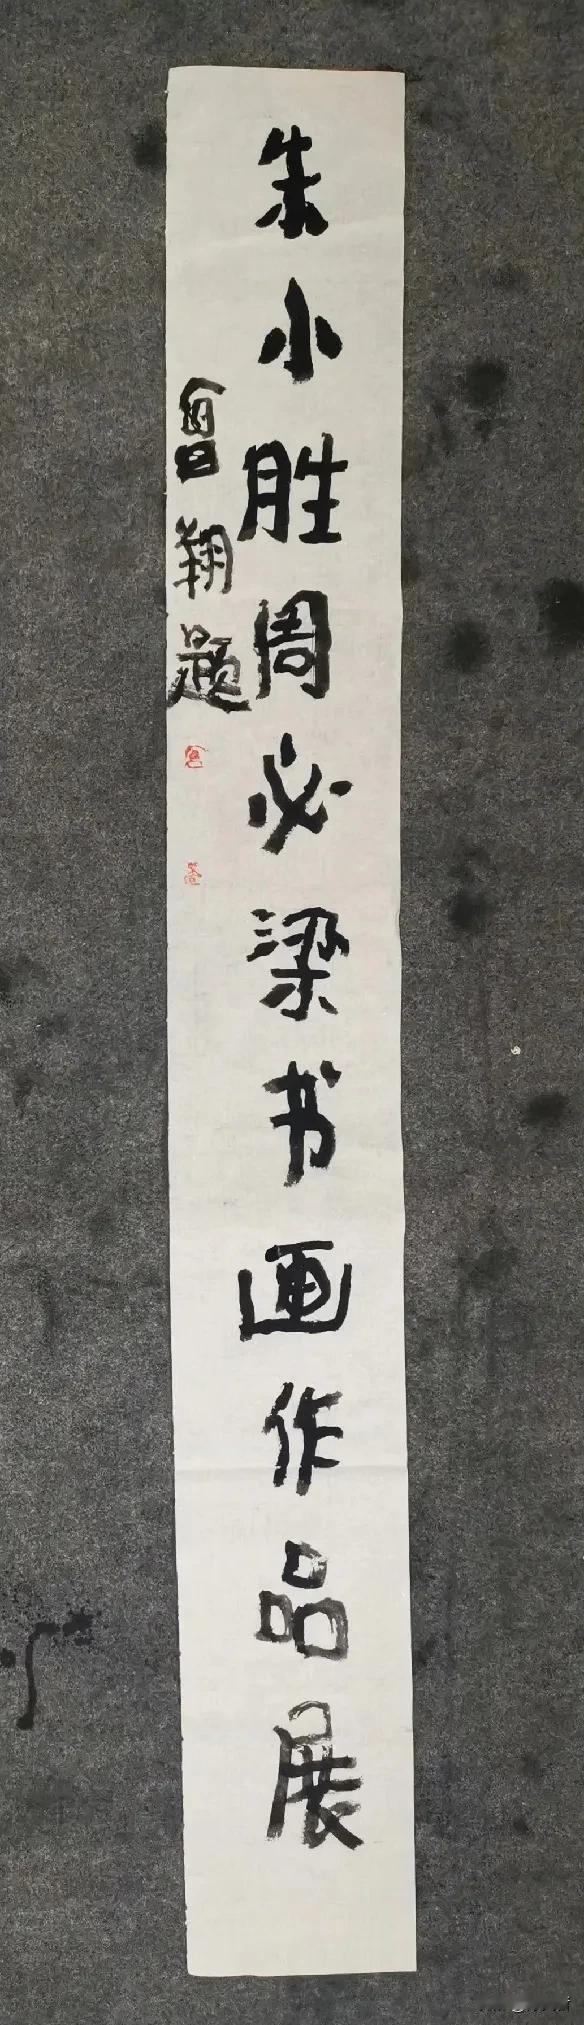 朱小胜周必梁书画作品展
曾翔题